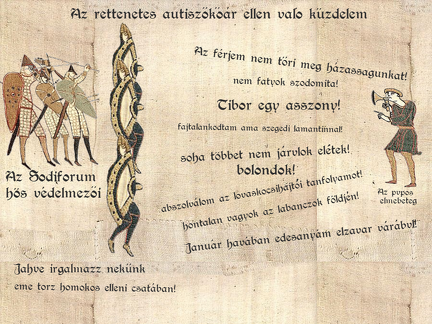 Az rettenetes autiszókóár ellen való küzdelem
Az férjem nem töri meg házassagunkat!
nem fatyok szodomita!
Tibor egy asszony!
fajtalankodtam ama szegedi lamantinnal!
soha többet nem járulok elétek!
bolondok!
abszolválom az lovaskocsihajtói tanfolyamot!
hontalan vagyok az labanczok földjén!
Január havában edesanyám elzavar várábul!
Az Sodiforum
hős védelmezői
Az pupos
elmebeteg
Jahve irgalmazz nekünk
eme torz homokos elleni csatában!